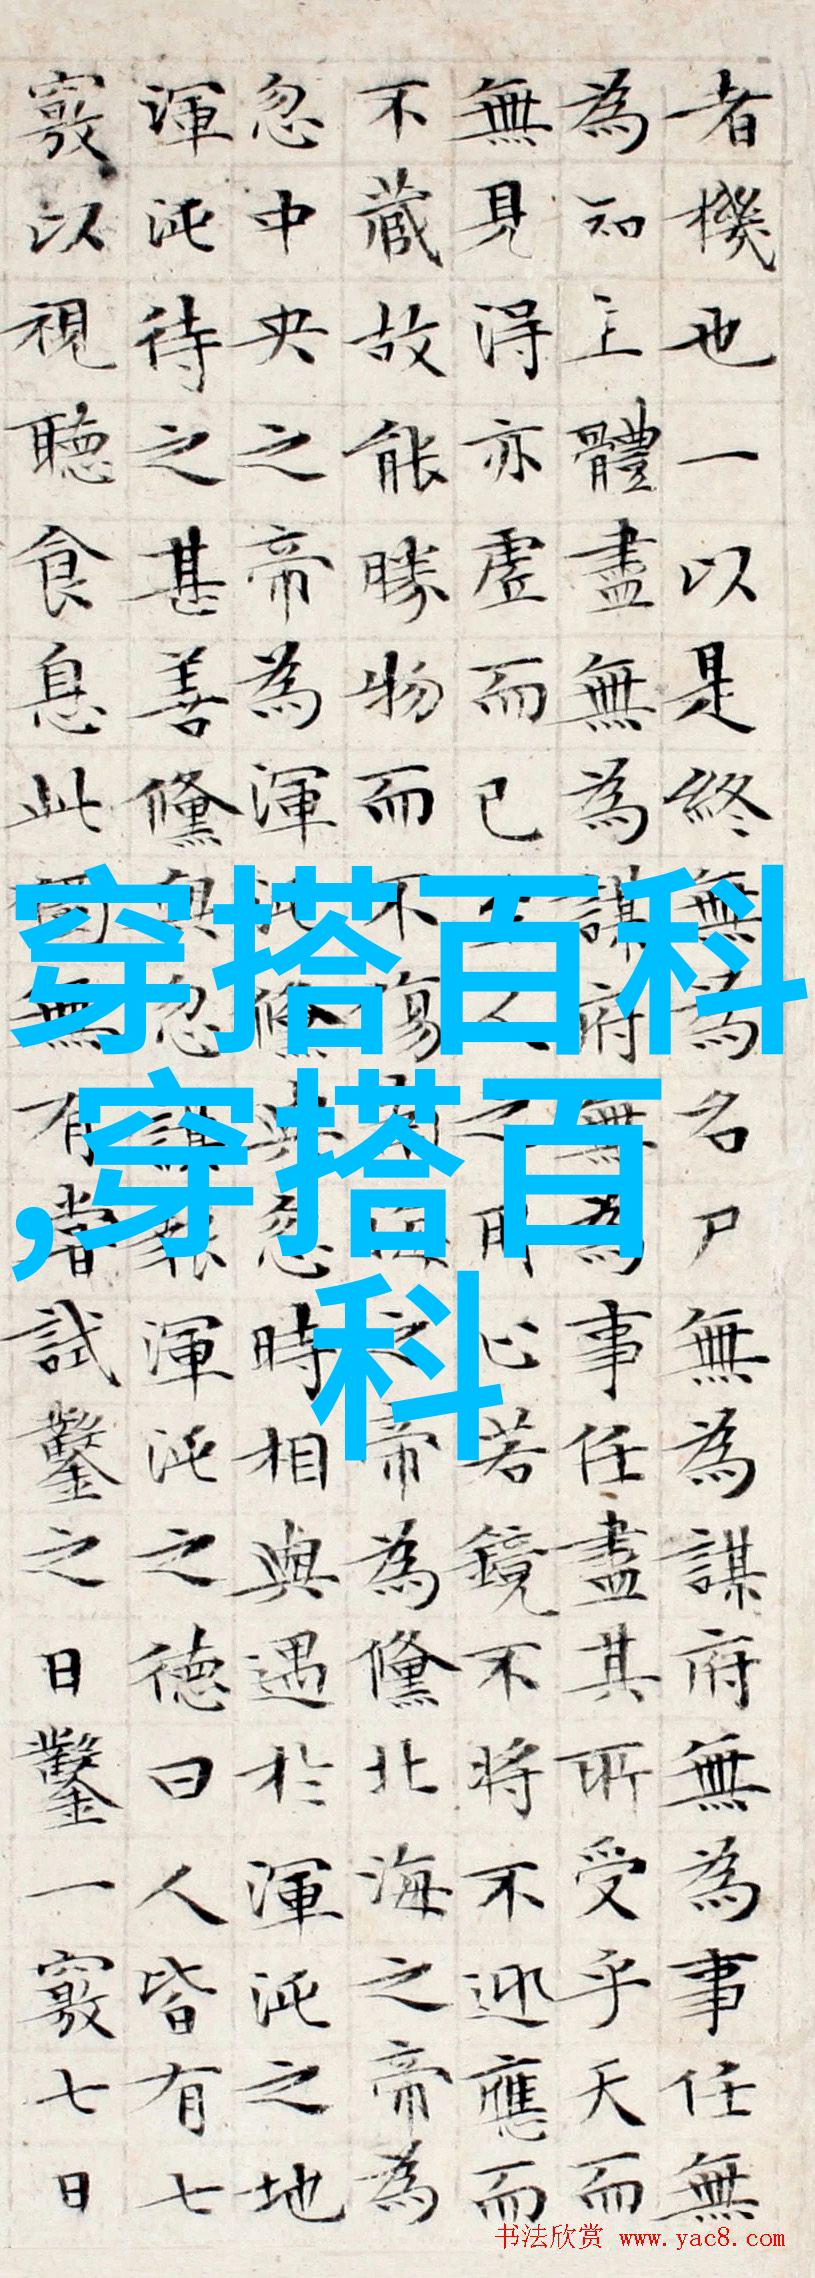 者機也一以是終無為名尸無為謀府無為事任無
為知主體盡無為謀府無為事任盡其所受乎天而
無見得亦虛而已至人之用心若鏡不將不迎應而
不藏故能勝物而不傷南海之帝為儵北海之帝為
忽中央之帝為渾沌儵與忽時相與遇於渾沌之地
渾沌待之甚善儵與忽謀報渾沌之德曰人皆有七
竅以視聽食息此獨無有嘗試鑿之日鑿一竅七日
穿搭百科
,穿搭百
科
书法欣赏 www.yac8.com